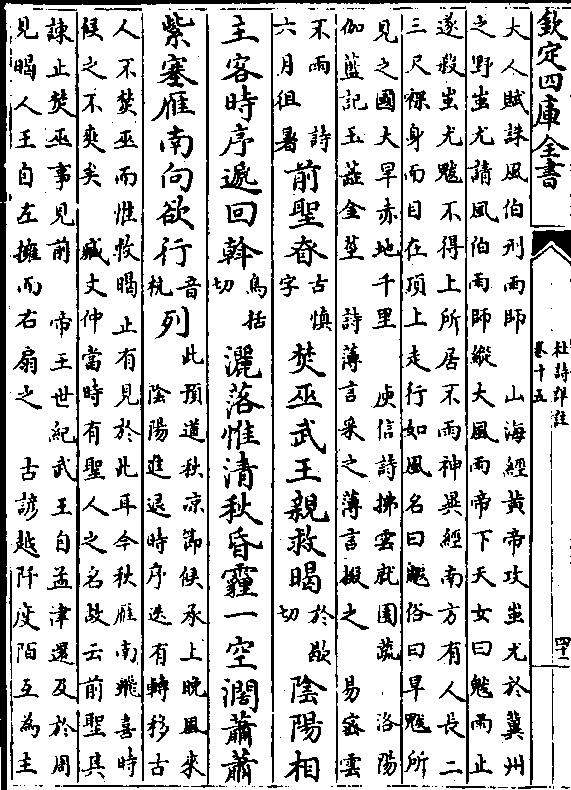 欽定四庫全書
杜詩詳註
卷十五
四十二
大人賦誅風伯刑雨師　山海經黃帝攻蚩尤於冀州
之野蚩尤請風伯雨師縱大風雨帝下天女曰魃雨止
遂殺蚩尤魃不得上所居不雨神異經南方有人長二
三尺裸身而目在頂上走行如風名曰魃俗曰旱魃所
見之國大旱赤地千里　庾信詩拂雲就園蔬　洛陽
伽藍記玉蕊金莖　詩薄言采之薄言掇之　易密雲
不雨　詩六月徂暑前聖眘古慎字焚巫武王親救暍於歇切陰陽相
主客時序遞回斡烏括切灑落惟清秋昏霾一空濶蕭蕭
紫塞雁南向欲行音杭列此預道秋凉節候承上晚風來陰陽進退時序迭有轉移古
人不焚巫而惟救暍止有見於此耳今秋雁南飛喜時
候之不爽矣　臧文仲當時有聖人之名故云前聖其
諫止焚巫事見前　帝王世紀武王自孟津還及於周
見暍人王自左擁而右扇之　古諺越阡度陌互為主